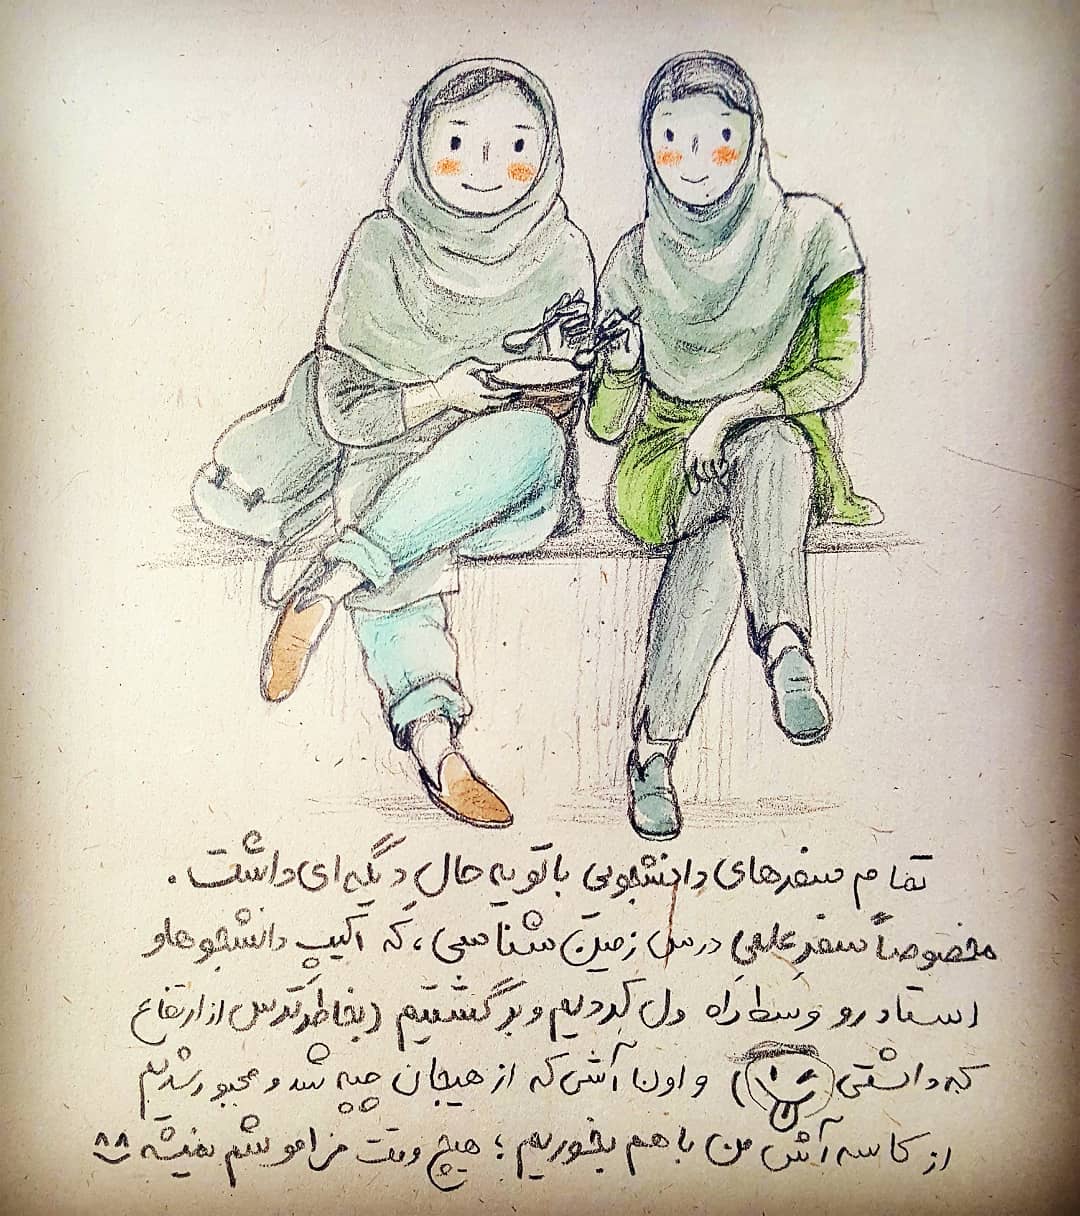 تمام سفرهای دانشجویی با تو یه حالِ دیگه‌ای داشت.
مخصوصاً سفرِ علمیِ درس زمین شناسی، که اکیپِ دانشجوها و
استاد رو وسط راه ول کردیم و برگشتیم (بخاطر ترس از ارتفاع
که داشتی) و اون آشی که از هیجان چپه شد و مجبور شدیم
از کاسه آش من با هم بخوریم؛ هیچ وقت فراموشم نمیشه ^^